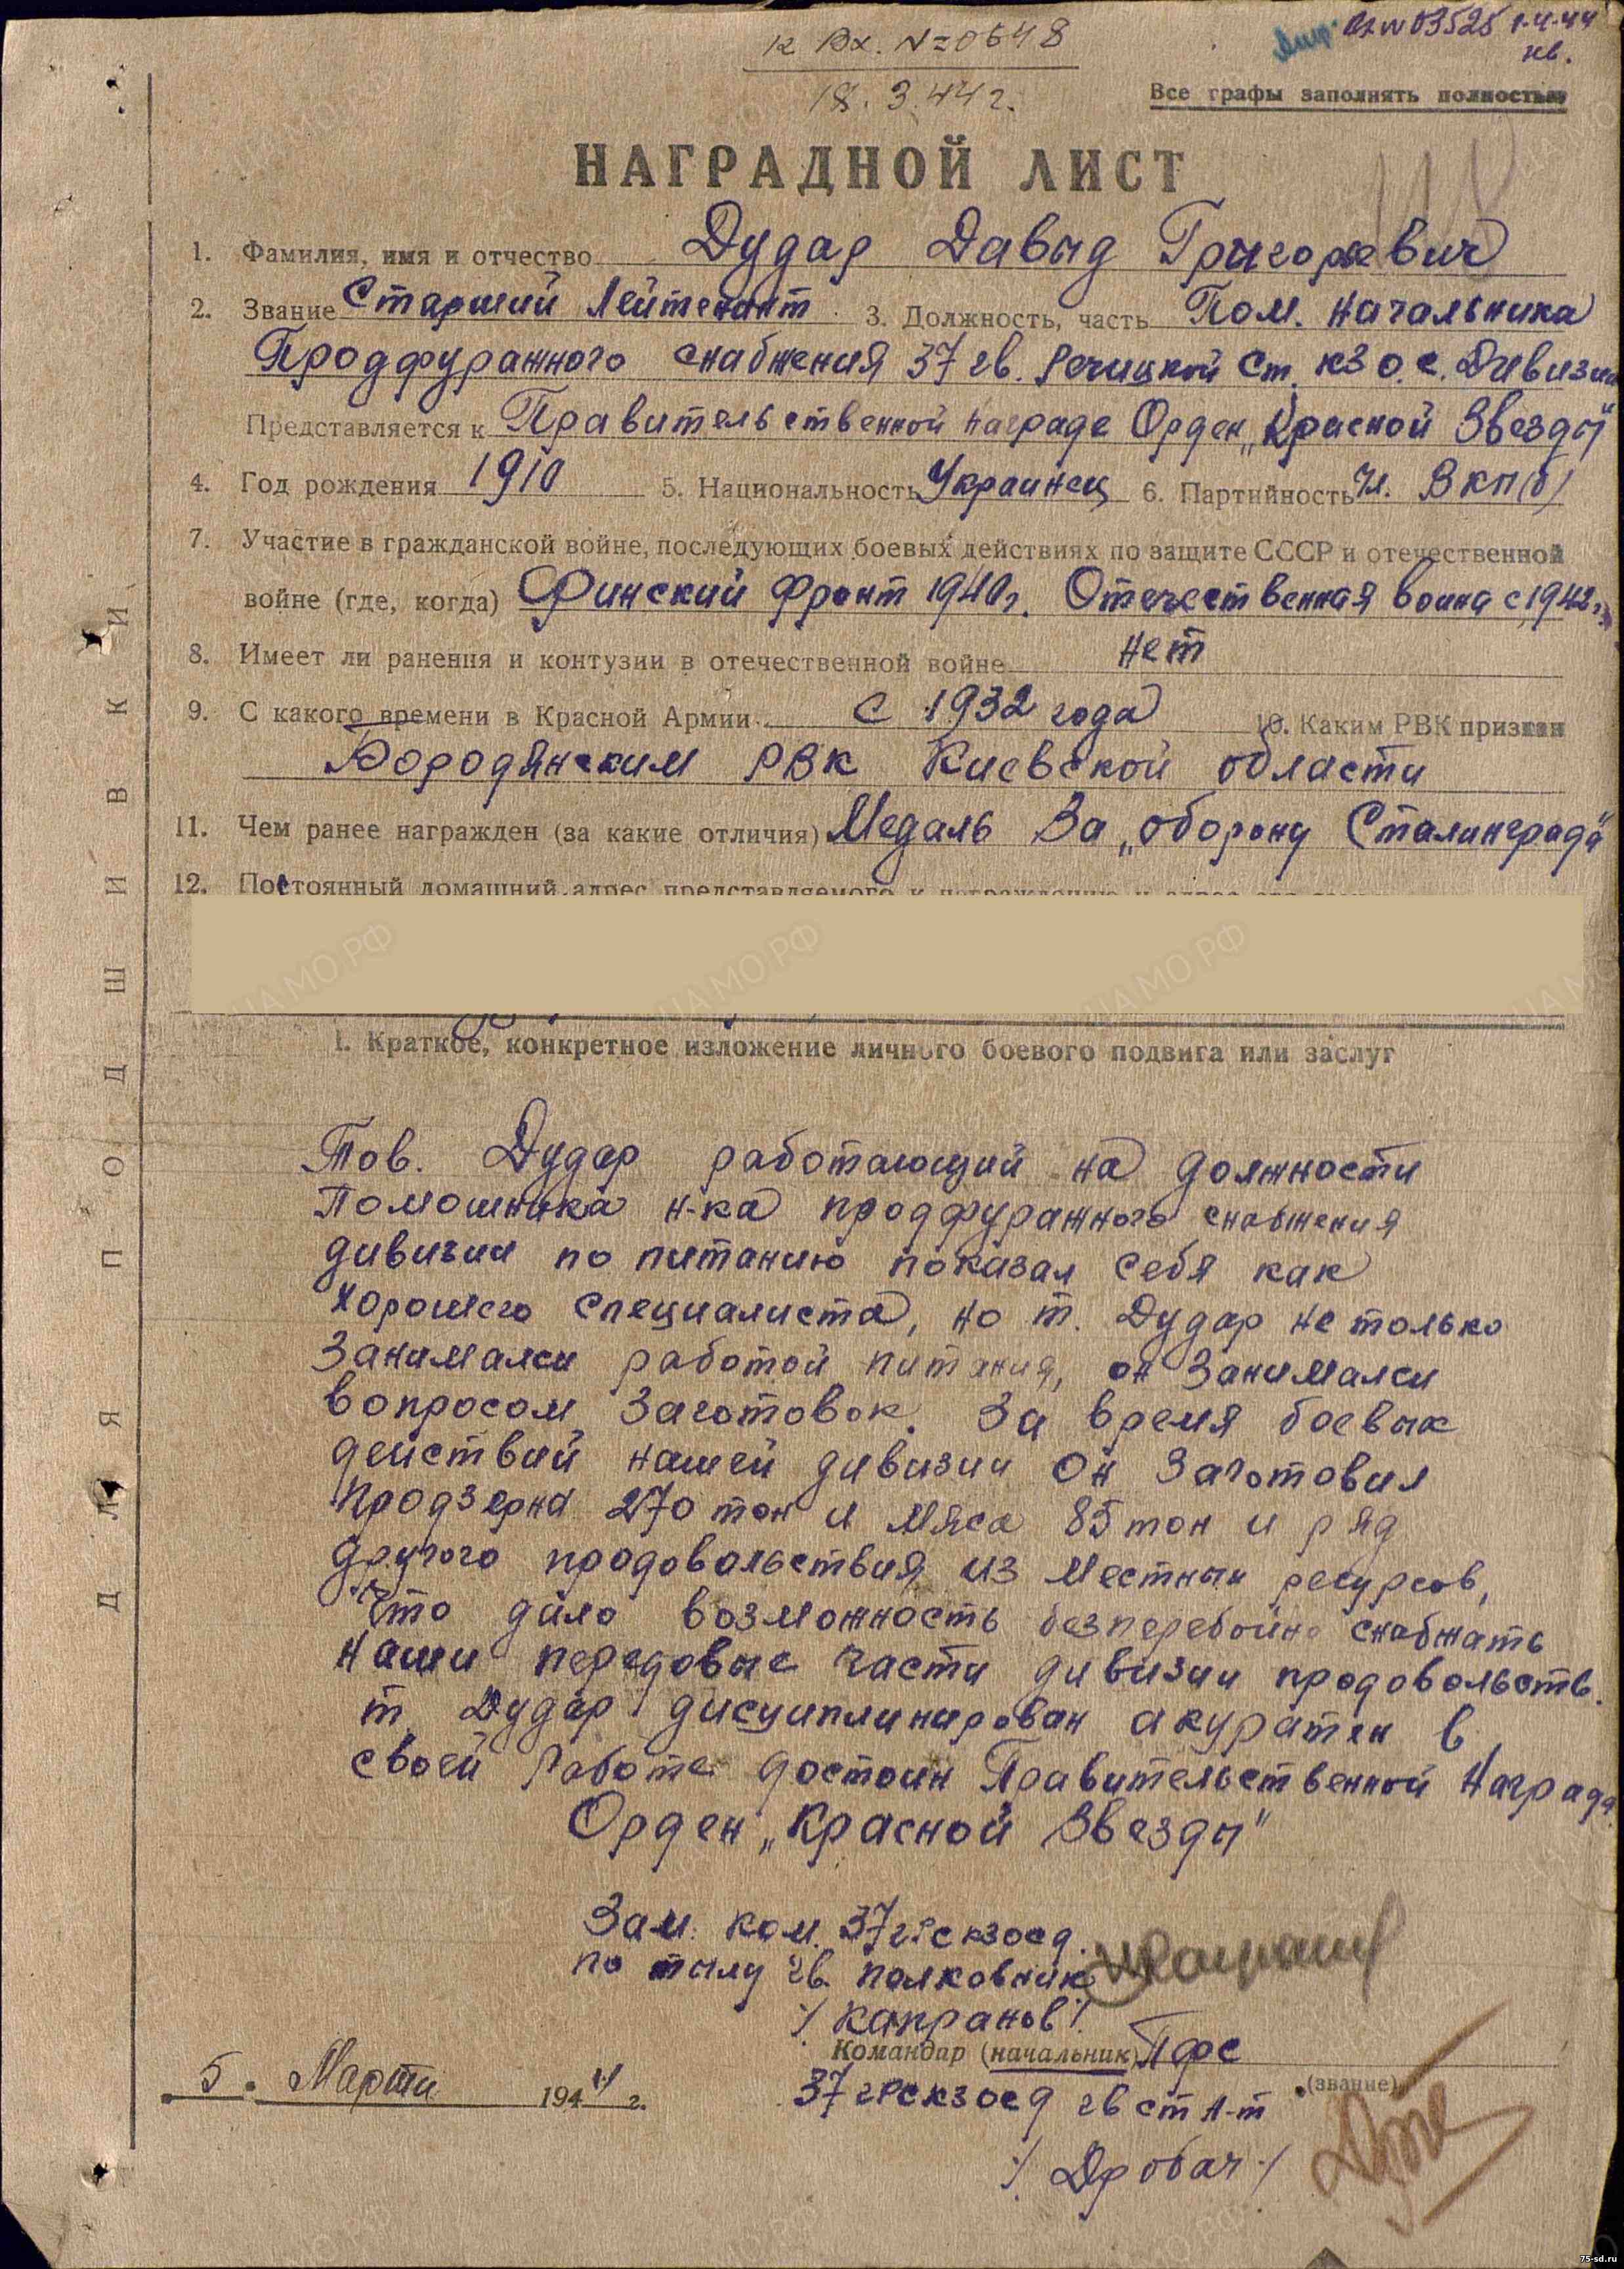 к Вх. №=0648
18. 3. 44 г.
Вх № 03525 1-4-44
нв.
Все графы заполнять полностью
НАГРАДНОЙ ЛИСТ
1. Фамилия, имя и отчество Дудар Давыд Григорьевич
2. Звание Старший Лейтенант 3. Должность, часть Пом. Начальника
Продфуражного снабжения 37 гв. Речицкой Ст. КЗ О. С. Дивизии
Представляется к Правительственной награде Орден „Красной Звезды"
4. Год рождения 1910 5. Национальность Украинец 6. Партийность Чл. ВКП(б)
7. Участие в гражданской войне, последующих боевых действиях по защите СССР и отечественной
войне (где, когда) Финский Фронт 1940г. Отечественная воина с 1942 г.
8. Имеет ли ранения и контузии в отечественной войне нет
9. С какого времени в Красной Армии с 1932 года 10. Каким РВК призван
Бородянским РВК Киевской области
11. Чем ранее награжден (за какие отличия) Медаль За „оборону Сталинграда"
12. Постоянный домашний адрес представляемого к награждению и адрес его
1. Краткое, конкретное изложение личного боевого подвига или заслуг
Тов. Дудар работающий на должности
Помошника н-ка продфуражного снабжения
дивизии по питанию показал себя как
хорошего специалиста, но т. Дудар не только
занимался работой питания, он занимался
вопросом заготовок. За время боевых
действий нашей дивизии он заготовил
продзерна 270 тон и мяса 85 тон и ряд
другого продовольствия из местных ресурсов,
что дало возможность безперебойно снабжать
наши передовые части дивизии продовольств.
т. Дудар дисциплинирован акуратен в
своей работе достоин Правительственной Награды
Орден „Красной Звезды"
Зам. ком. 37 грскзосд.
по тылу гв. полковник
/Капранов/.
Командир (начальник) ПФС
(звание)
5. Марта 1944 г.
37 грскзосд гв ст л-т
/Дробач/
ДЛЯ ПОДШИВКИ
ЦАМО.РФ
75-sd.ru